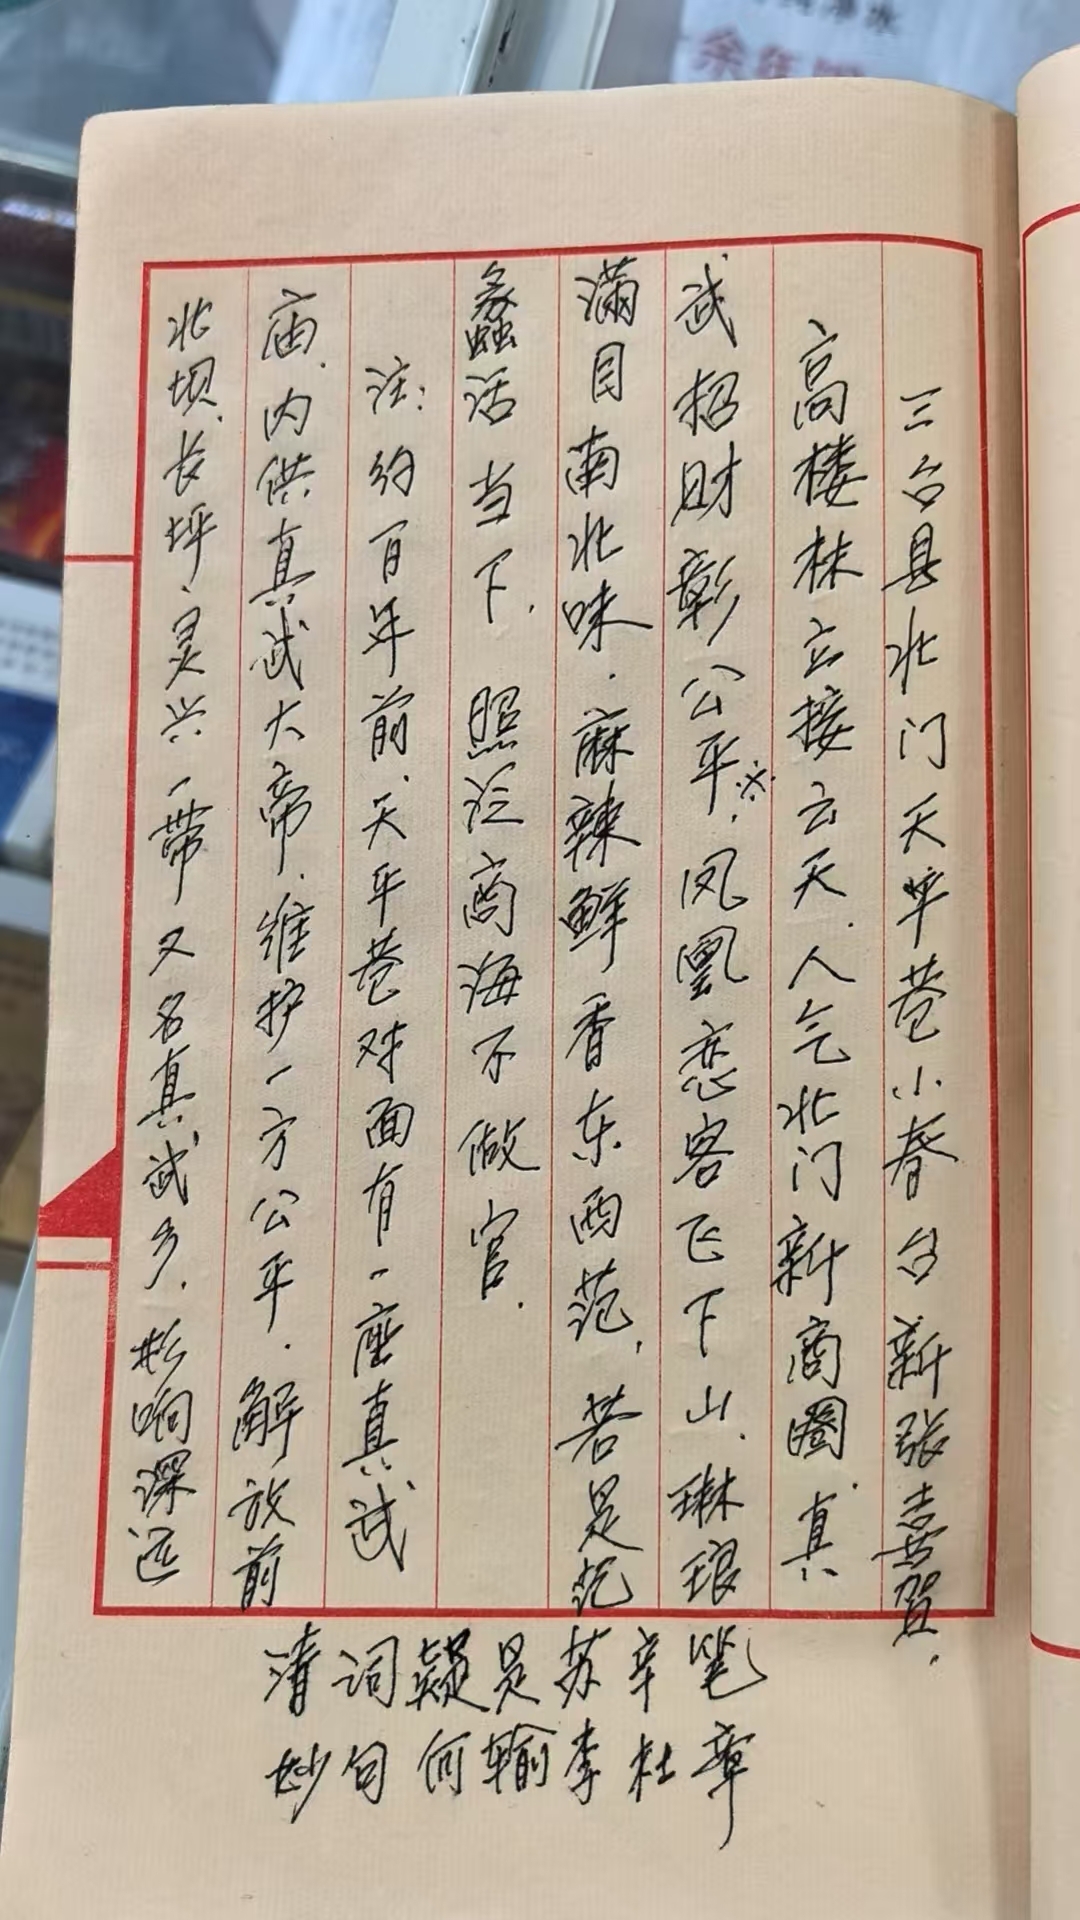 三台县北门天平巷小春台新张喜贺.
高楼林立接云天.人气北门新商圈.真
武招财彰公平※.凤凰恋客飞下山.琳琅
满目南北味.麻辣鲜香东西范,若是范
蠡活当下.照泛商海不做官.
注:约百年前、天平巷对面有一座真武
庙.内供真武大帝.维护一方公平.解放前
北坝、长坪、灵兴一带又名真武乡.影响深远
清词疑是苏辛笔
妙句何输李杜章
余年